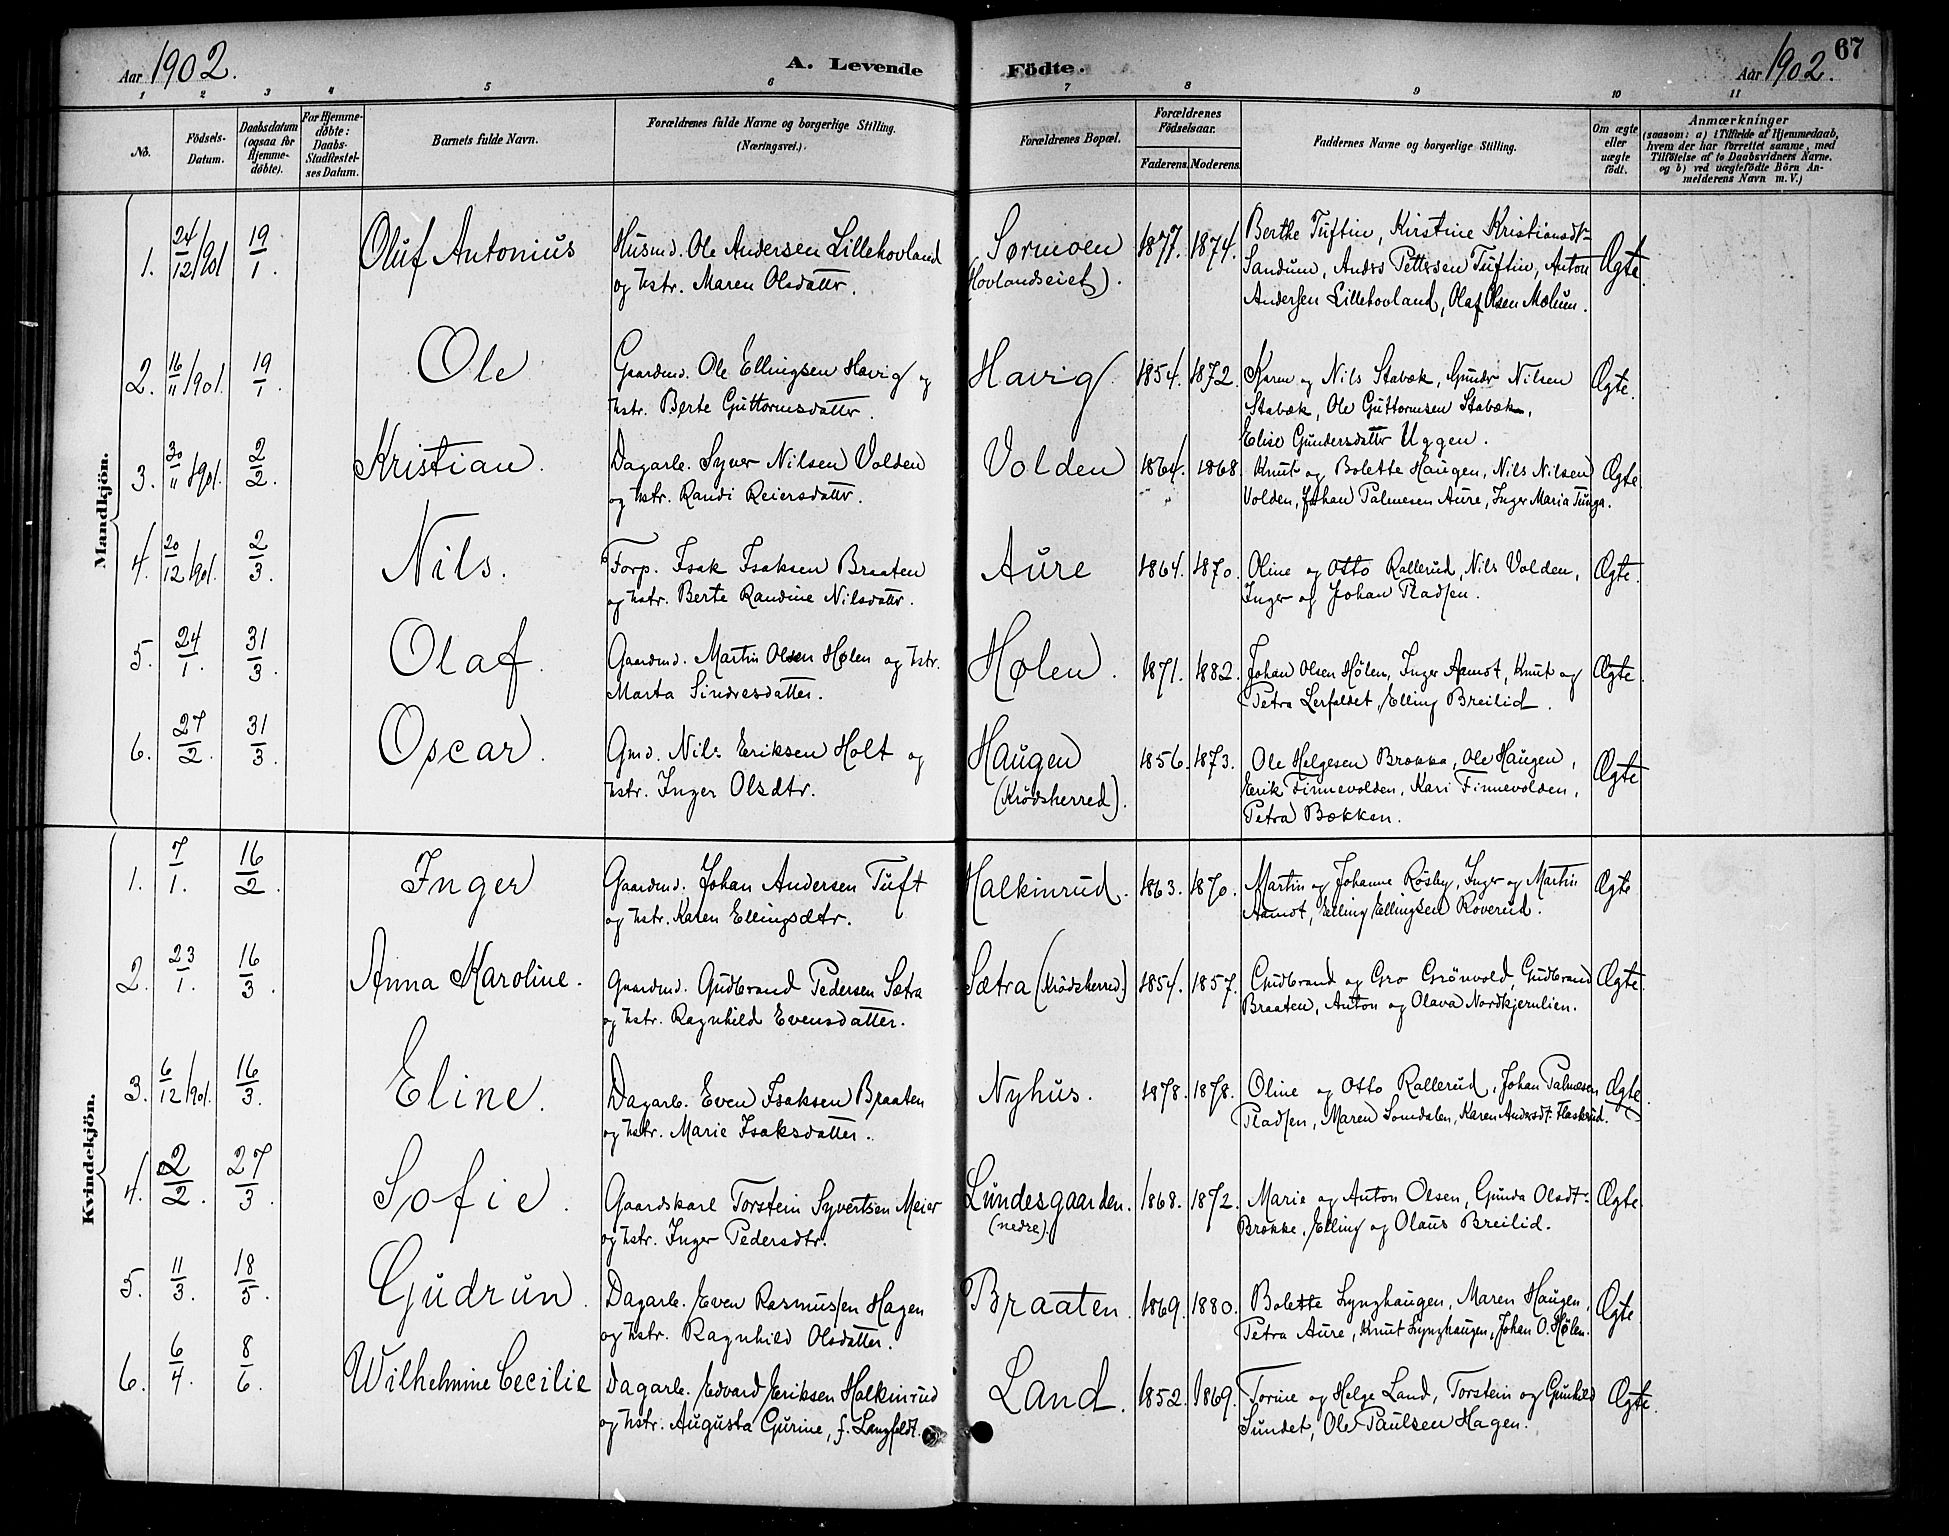 Aar 1902. A. Levende Födte. Aar 1902. 67
1 2 3 4 5 6 7 8 9 10 11
No.
Födsels-Datum.
Daabsdatum (ogsaa for Hjemme-döbte).
For Hjemme-döbte: Daabs-Stadfæstel-ses Datum.
Barnets fulde Navn.
Forældrenes fulde Navne og borgerlige Stilling.
(Næringsvei.)
Forældrenes Bopæl.
Forældrenes Födselsaar.
Faderens. Moderens.
Faddernes Navne og borgerlige Stilling.
Om ægte eller uægte födt.
Anmærkninger
(saasom: a) i Tilfælde af Hjemmedaab,
hvem der har forrettet samme, med
Tilföielse af to Daabsvidners Navne.
og b) ved uægtefödte Börn An-
melderens Navn m. V.)
Mandkjön.
1. 24/12 1901 19/1. Oluf Antonius
Husmd. Ole Andersen Lillehovland
og hstr. Maren Olsdattr.
Sørmoen
(Hovlandseiet).
1877. 1874.
Berthe Tuftin, Kirstine Kristiansdtr
Sandum, Anders Pettersen Tuftin, Anton
Andersen Lillehovland, Olaf Olsen Molum.
Ægte.
2. 16/11 1901. 19/1. Ole
Gaardmd. Ole Ellingsen Havig og
hstr. Berte Guttormsdattr.
Havig
1854. 1872.
Karen og Nils Stabæk, Gundr Nilsen
Stabæk, Ole Guttormsen Stabæk,
Elise Gundersdattr Uggen.
Ægte.
3. 30/11 1901. 2/2. Kristian.
Dagarb. Syver Nilsen Volden
og hstr. Randi Reiersdattr.
Volden
1864. 1868
Knut og Bolette Haugen, Nils Nilsen
Volden, Johan Palmesen Aure, Inger Maria Tunga.
Ægte
4. 20/12 1901. 2/3. Nils.
Forp. Isak Isaksen Braaten
og hstr. Berte Randine Nilsdattr.
Aure
1864. 1870.
Oline og Otto Rallerud, Nils Volden,
Inger og Johan Pladsen.
Ægte.
5. 24/1. 31/3. Olaf.
Gaardmd. Martin Olsen Hølen og hstr.
Marta Sindresdatter.
Hølen.
1871. 1882.
Johan Olsen Hölen, Inger Aamot, Knut og
Petra Lerfaldet, Elling Breilid.
Ægte.
6. 27/2. 31/3. Oscar.
Gmd. Nils Eriksen Holt og
hstr. Inger Olsdtr.
Haugen
(Krödsherred).
1856. 1873.
Ole Helgesen Brokka, Ole Haugen,
Erik Finnevolden, Kari Finnevolden,
Petra Bækken.
Ægte
Kvindekjön.
1. 7/1. 16/2. Inger
Gaardmd. Johan Andersen Tuft
og hstr. Karen Ellingsdtr.
Halkinrud.
1863. 1870.
Martin og Johanne Rösby, Inger og Martin
Aamot, Elling Ellingsen Roverud.
Ægte
2. 23/1. 16/3. Anna Karoline.
Gaardmd. Gudbrand Pedersen Sætra
og hstr. Ragnhild Evensdatter.
Sætra (Krödsherred.)
1854. 1857.
Gudbrand og Gro Grönvold, Gudbrand
Braaten, Anton og Olava Nordkjernlien.
Ægte.
3. 6/12 1901. 16/3. Eline.
Dagarb. Even Isaksen Braaten
og hstr. Marie Isaksdatter.
Nyhus.
1878. 1878.
Oline og Otto Rallerud, Johan Palmesen
Pladsen, Maren Somdalen, Karen Andersdt. Flaskerud.
Ægte.
4. 2/2. 27/3. Sofie.
Gaardskarl Torstein Syvertsen Meier
og hstr. Inger Pedersdtr.
Lundesgaarden.
(nedre).
1868. 1872.
Marie og Anton Olsen, Gunda Olsdt.
Brokke, Elling og Olaus Breilid.
Ægte.
5. 11/3. 18/5. Gudrun.
Dagarb. Even Rasmussen Hagen
og hstr. Ragnhild Olsdatter.
Braaten.
1869. 1880.
Bolette Lynghaugen, Maren Haugen,
Petra Aure, Knut Lynghaugen, Johan O. Hølen.
Ægte.
6. 6/4. 8/6. Wilhelmine Cecilie
Dagarb. Edvard Eriksen Halkinrud
og hstr. Augusta Gurine, f. Langfeldt.
Land.
1852. 1869.
Torine og Helge Land, Torstein og Gunhild
Sundet, Ole Paulsen Hagen.
Ægte.